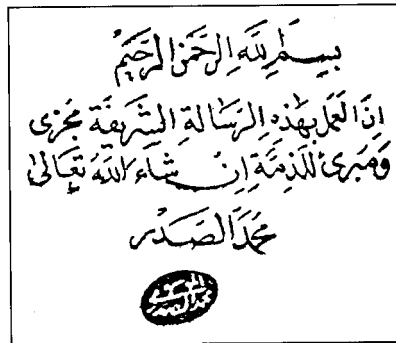 بِسْمِ اللَّهِ الرَّحْمَنِ الرَّحِيمِ
اِنَّ العَمَلَ بِهٰذِهِ الرِّسَالَةِ الشَّرِيفَةِ مُجزى
وَمُبرئٌ لِلذِّمَّةِ اِنْ شَاءَ اللَّهُ تَعَالَىٰ
مُحَمَّد الصَّدْر
محمد الصدر